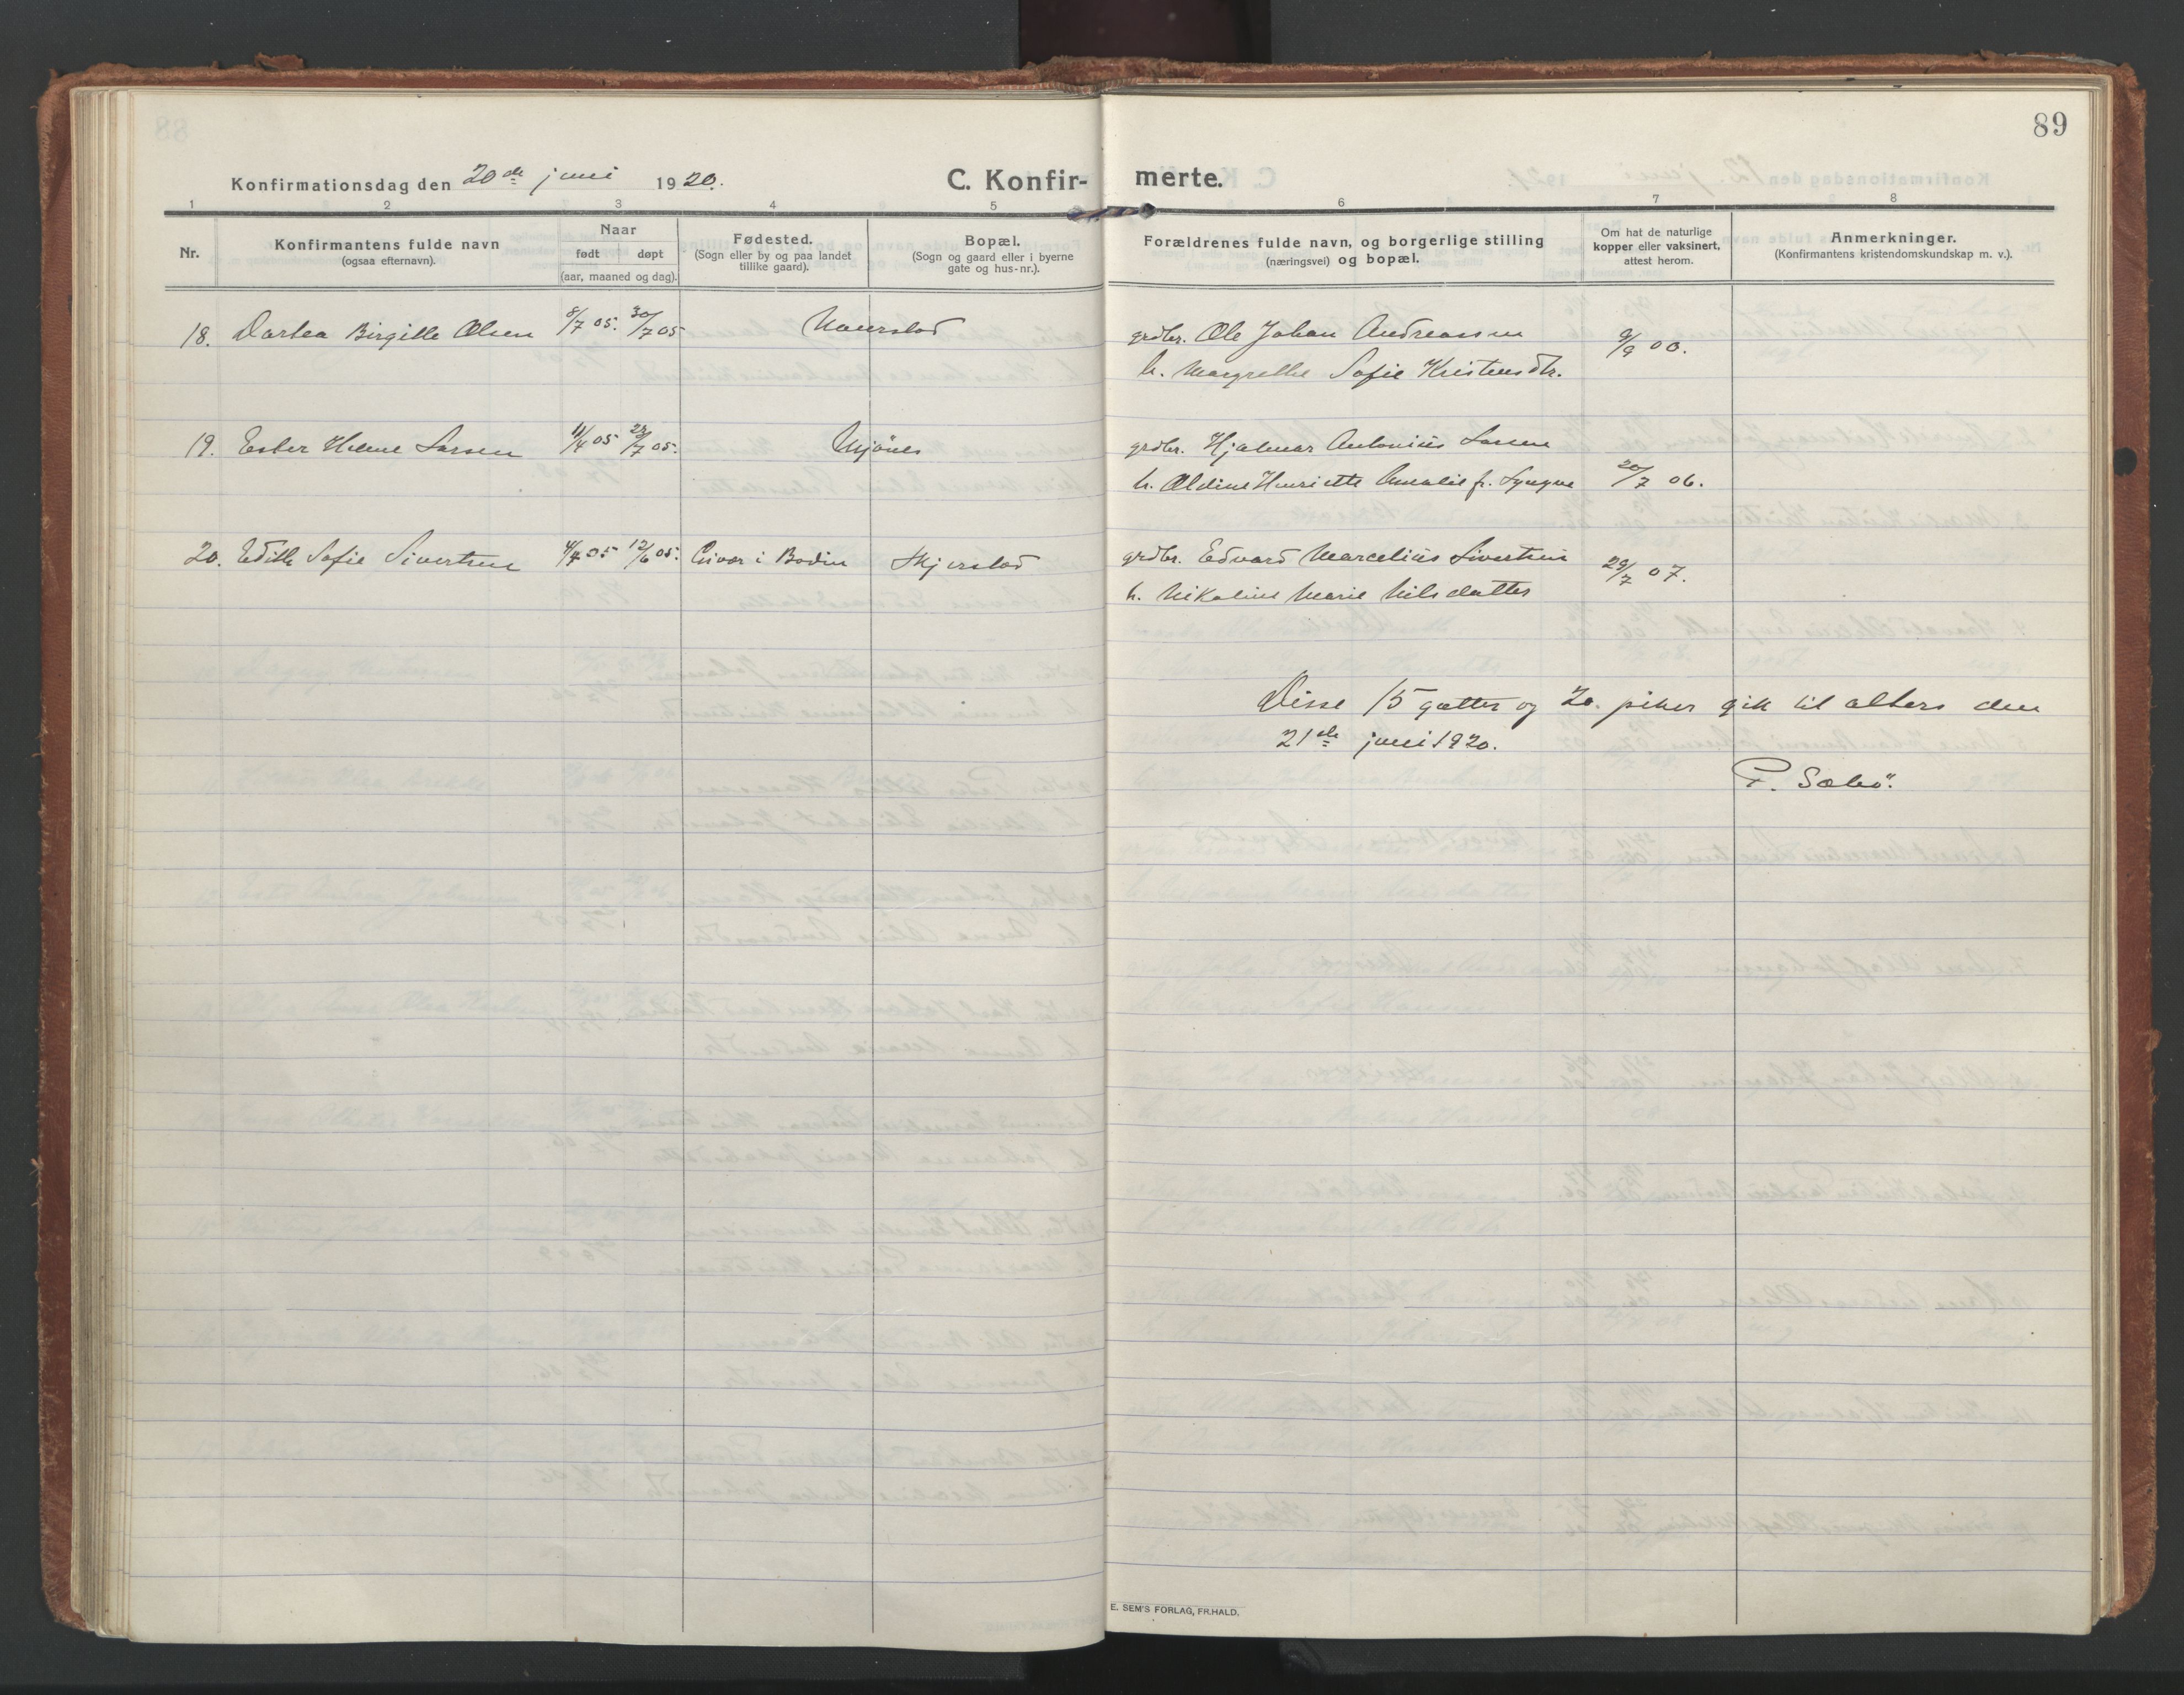 89
Konfirmationsdag den 20de juni 1920. C. Konfir- merte.
1 2 3 4 5 6 7 8
Nr. Konfirmantens fulde navn (ogsaa efternavn). Naar født døpt (aar, maaned og dag). Fødested. (Sogn eller by og paa landet tillike gaard). Bopæl. (Sogn og gaard eller i byerne gate og hus-nr.). Forældrenes fulde navn, og borgerlige stilling (næringsvei) og bopæl. Om hat de naturlige kopper eller vaksinert, attest herom. Anmerkninger. (Konfirmantens kristendomskundskap m. v.).
18. Dortea Birgitte Olsen 8/7 05. 30/7 05 grdbr. Ole Johan Andreassen 9/9 00.
h. Margrethe Sofie Kristensdtr.
19. Ester Helene Larsen 11/4 05 23/7 05. Mjönes grdbr. Hjalmar Antonius Larsen
h. Oldine Henriette Amalie f. Lyngve 20/7 06.
20. Edith Sofie Sivertsen 4/4 05 12/6 05. i Bodin Skjerstad grdbr. Edvard Marcelius Sivertsen 29/7 07.
h. Nikoline Marie Nilsdatter
Disse 15 gutter og 20 piker gik til alters den
21de juni 1920.
P. Sæbö.
E. SEM'S FORLAG, FR.HALD.